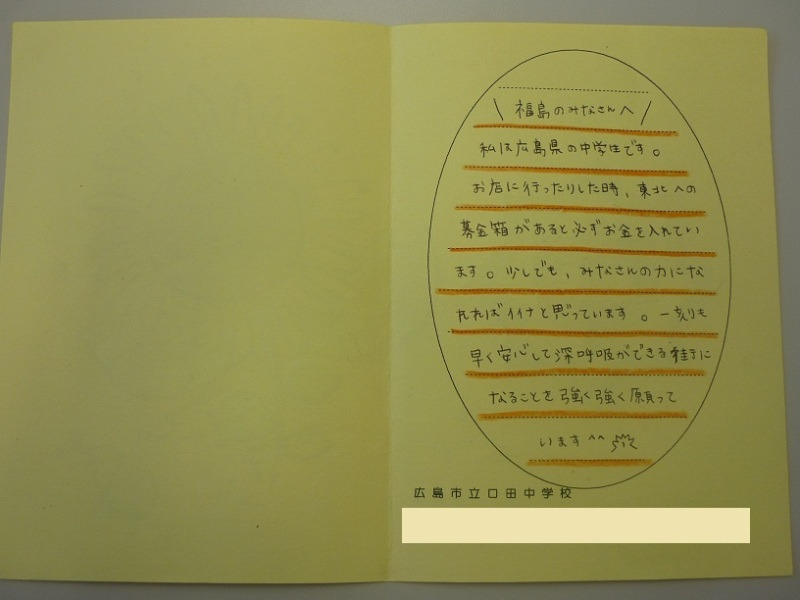 \ 福島のみなさんへ /
私は広島県の中学生です。
お店に行ったりした時、東北への
募金箱があると必ずお金を入れてい
ます。少しでも、みなさんの力にな
れればイイナと思っています。一刻も
早く安心して深呼吸ができる様に
なることを強く強く願って
います^^
広島市立口田中学校